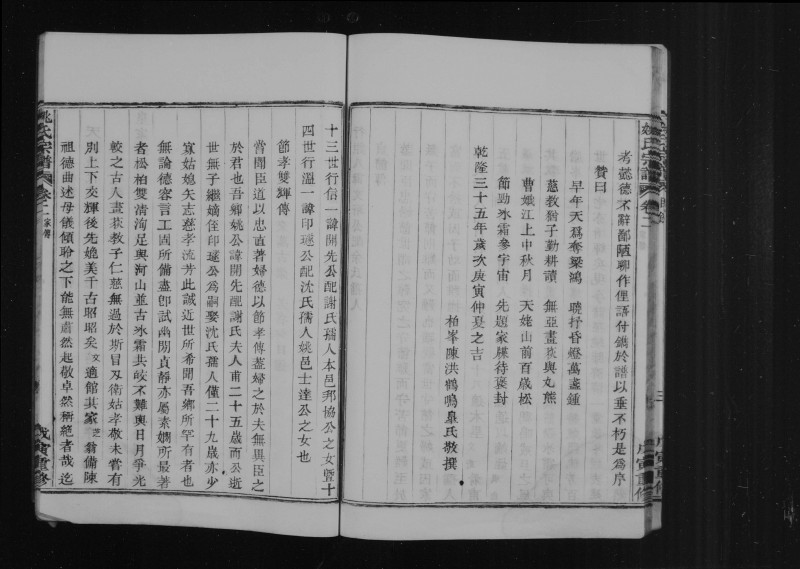 考懿德不辭鄙陋聊作俚語付鐫於譜以垂不朽是爲序
贊曰
早年天爲奪梁鴻 曉抒昏燈萬盞鍾
慈教猶子勤耕讀 無亞畫荻與丸熊
曹娥江上中秋月 天姥山前百歲松
節勁氷霜參宇宙 先題家牒待褒封
乾隆三十五年歲次庚寅仲夏之吉
柏峯陳洪鶴鳴臯氏敬撰
姚氏宗譜 卷二 家傳
十三世行信一諱開先公配謝氏孺人本邑邦協公之女暨十
四世行溫一諱印璲公配沈氏孺人姚邑士達公之女也
節孝雙輝傳
嘗聞臣道以忠直著婦德以節孝傳蓋婦之於夫無異臣之
於君也吾鄉姚公諱開先配謝氏夫人甫二十五歲而公逝
世無子繼嫡侄印璲公爲嗣娶沈氏孺人僅二十九歲亦少
寡姑媳矢志慈孝流芳此誠近世所希聞吾鄉所罕有者也
無論德容言工固所備盡卽試幽閒貞靜亦屬素嫻所最著
者松柏雙清洵足與河山並古氷霜共皎不難與日月爭光
較之古人畫荻教子仁慈無過於斯冐刃衛姑孝敬未嘗有
別上下交輝後先媲美千古昭昭矣文適館其家芝翁備陳
祖德曲述母儀傾聆之下能無肅然起敬卓然稱絶者哉迄
戊寅重修